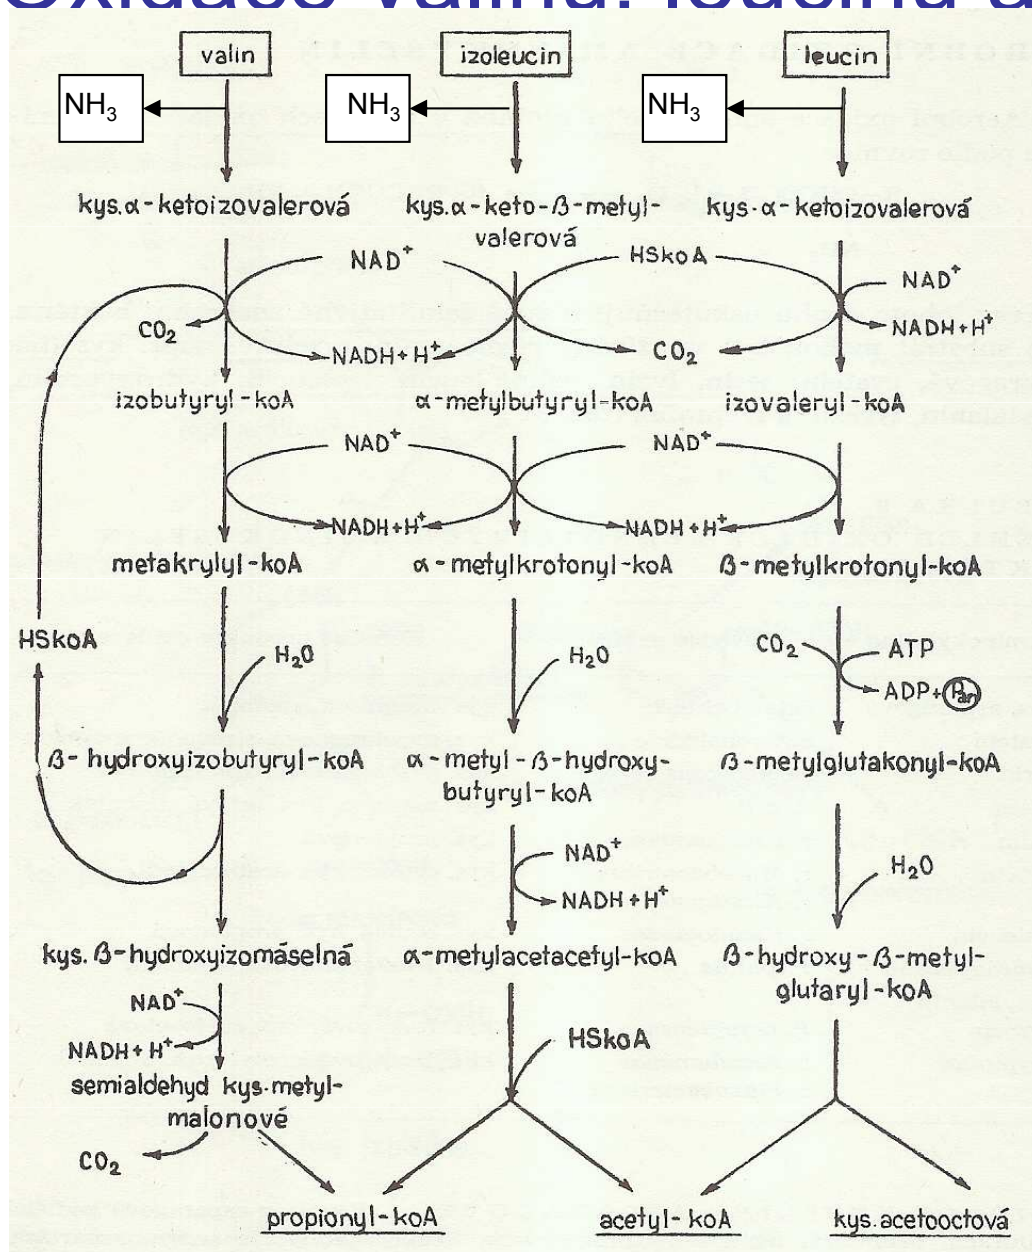 Oxidace valinu, leucinu a
valin izoleucin leucin
NH3 NH3 NH3
kys.α-ketoizovalerová kys.α-keto-β-metyl- kys.α-ketoizovalerová
valerová
NAD+ HSkoA NAD+
CO2 NADH+H+ CO2 NADH+H+
izobutyryl-koA α-metylbutyryl-koA izovaleryl-koA
NAD+ NAD+
NADH+H+ NADH+H+
metakrylyl-koA α-metylkrotonyl-koA β-metylkrotonyl-koA
HSkoA H2O H2O CO2 ATP
ADP+Pan
β-hydroxyizobutyryl-koA α-metyl-β-hydroxy- β-metylglutakonyl-koA
butyryl-koA
NAD+ H2O
NADH+H+
kys.β-hydroxyizomáselná α-metylacetacetyl-koA β-hydroxy-β-metyl-
glutaryl-koA
NAD+
NADH+H+ HSkoA
semialdehyd kys.metyl-
malonové
CO2
propionyl-koA acetyl-koA kys.acetooctová